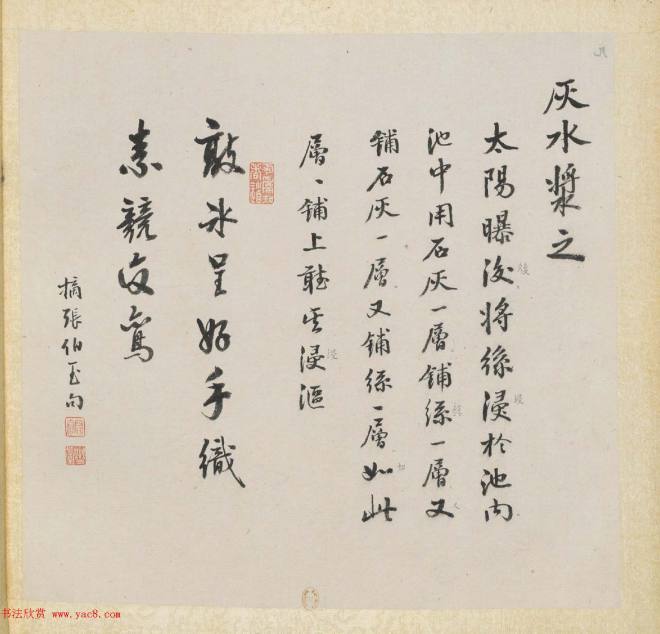 灰水漿之
太陽曝後將絲浸於池內
池中用石灰一層鋪絲一層又
鋪石灰一層又鋪絲一層如此
層、鋪上聽其浸漚
敲冰呈好手織
素競交鴛
摘張伯玉句
书法欣赏 www.yac8.com